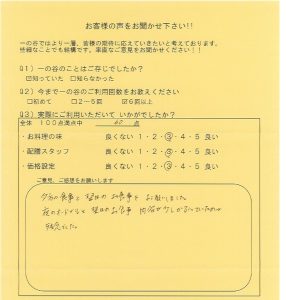 お客様の声をお聞かせ下さい!!
一の谷ではより一層、皆様の期待に応えていきたいと考えております。
些細なことでも結構です。率直なご意見をお聞かせください!!
Q1)一の谷のことはご存じでしたか?
☑知っていた □知らなかった
Q2)今まで一の谷のご利用回数をお教えください
□初めて □2～5回 ☑6回以上
Q3)実際にご利用いただいて いかがでしたか?
全体 100点満点中 60 点
・お料理の味 良くない 1・2・③・4・5 良い
・配膳スタッフ 良くない 1・2・③・4・5 良い
・価格設定 良くない 1・2・③・4・5 良い
ご意見、ご感想をお願いします
夕方の食事と 翌日の お食事を お願いしました